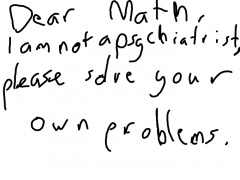 Dear Math,
I am not a psychiatrist,
please solve your
own problems.